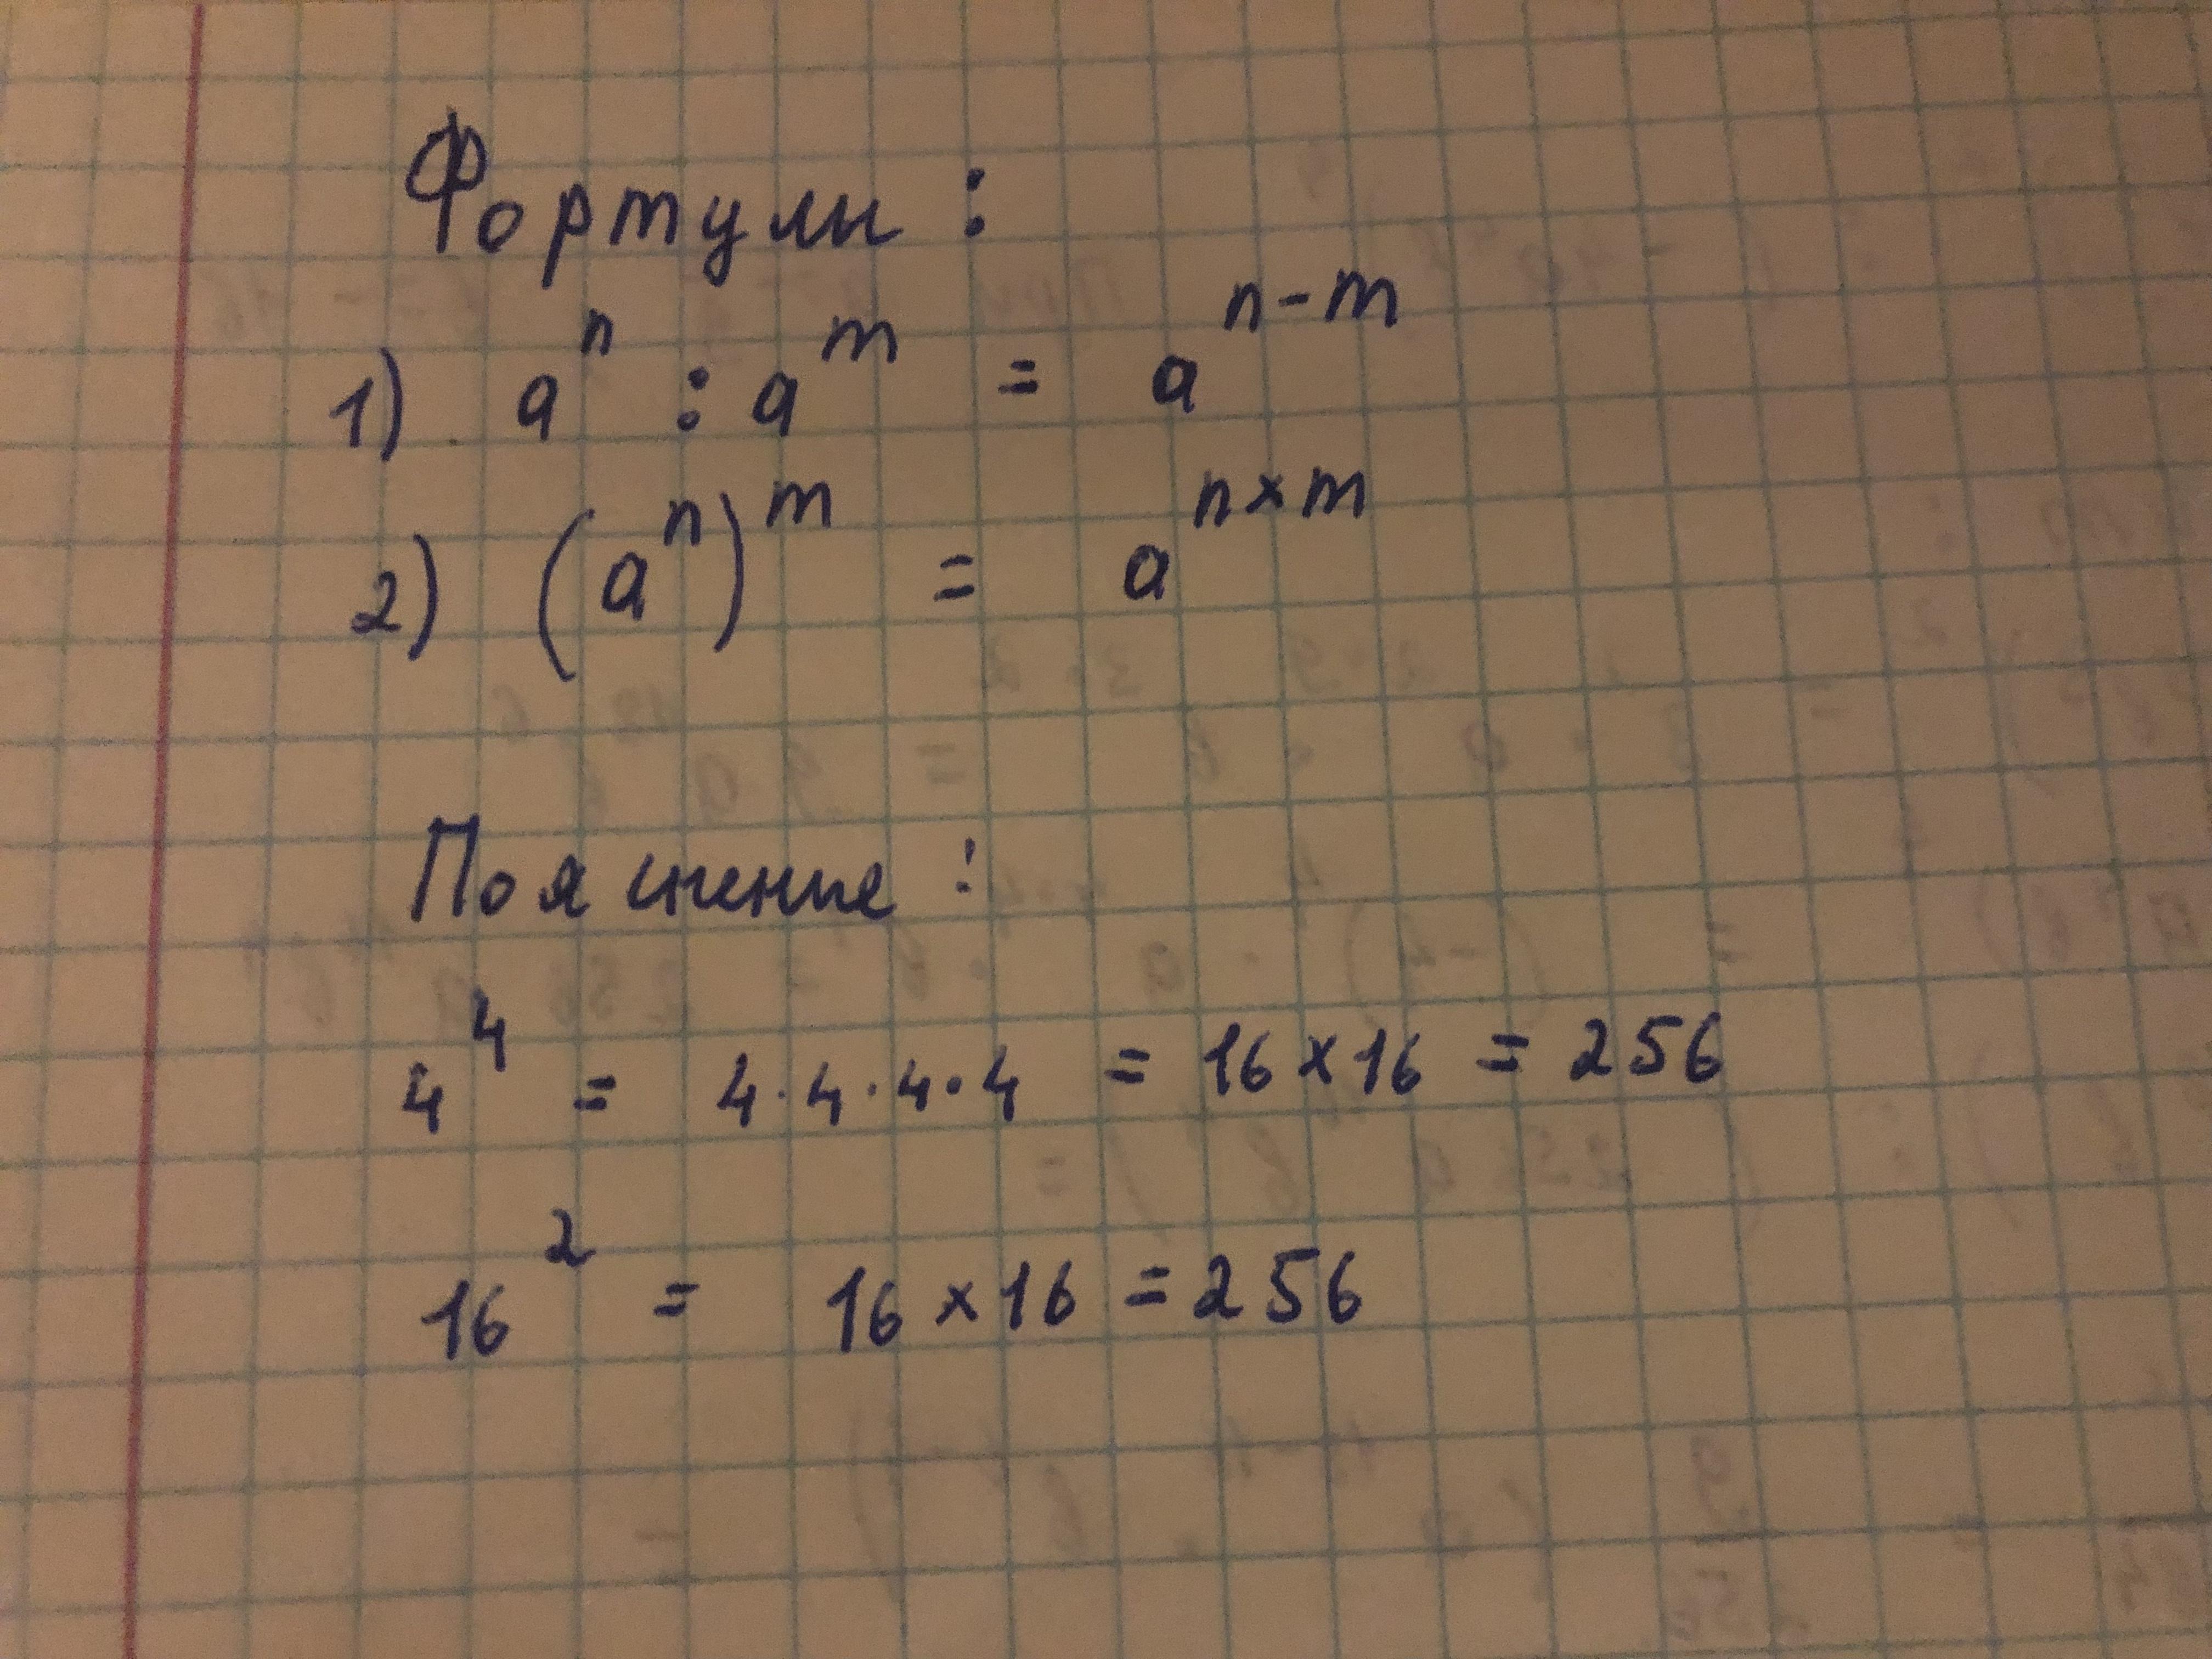 Формулы :
1) aⁿ : aᵐ = aⁿ⁻ᵐ
2) (aⁿ)ᵐ = aⁿˣᵐ
Пояснение :
4⁴ = 4·4·4·4 = 16×16 = 256
16² = 16×16 = 256